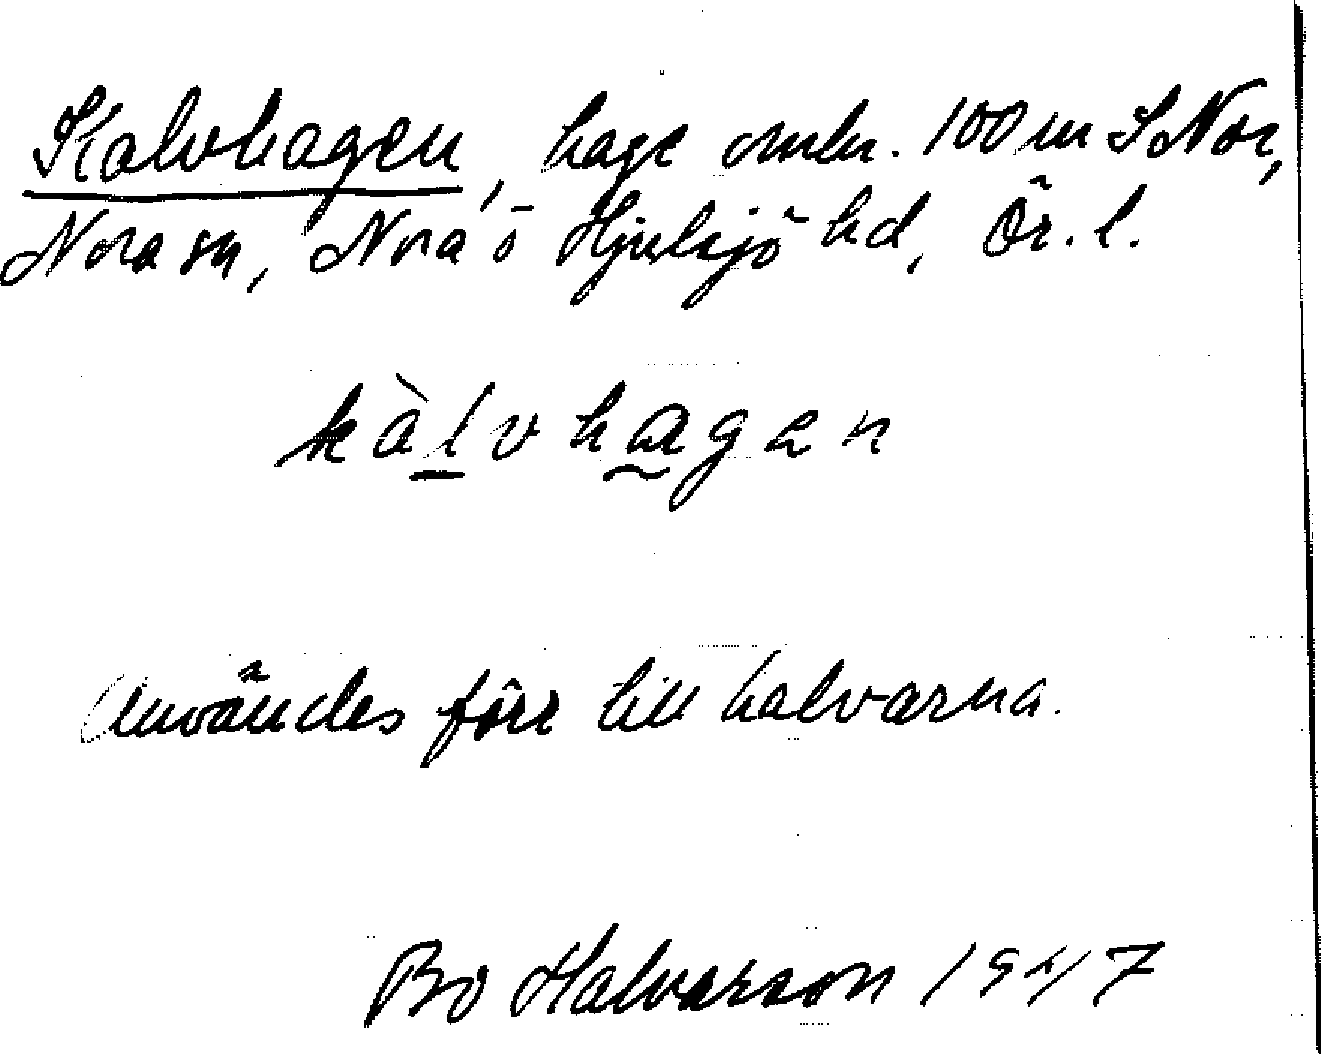 Kalvhagen, hage omkr. 100 m S Nor,
Nora sn, Nora o Hjulsjö hd, Ör. l.
kàlvhagen
Användes förr till kalvarna.
Bo Halvarson 1947